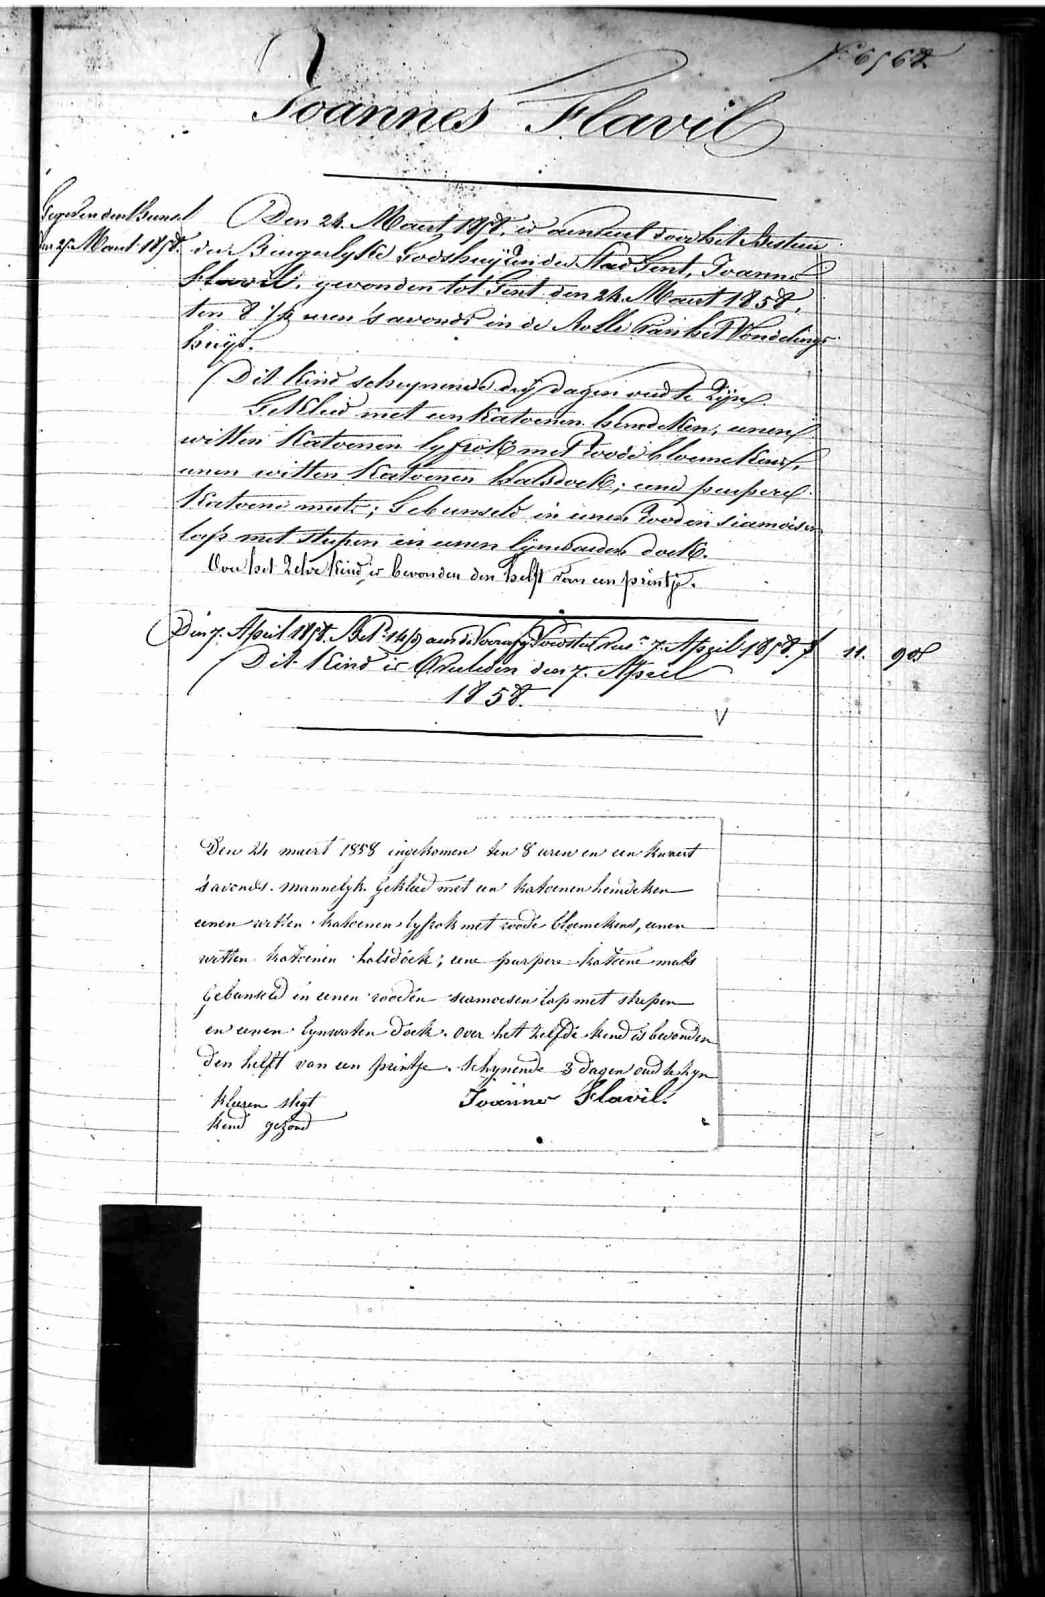 N° 6562
Joannes Flavil
Gegeven den Bunsel
den 25 Maart 1858.
Den 24. Maart 1858, is aenveert door het Bestuur
der Burgerlyke Godshuyzen der Stad Gent, Joannes
Flavil, gevonden tot Gent den 24. Maart 1858,
ten 8 1/4 uren 's avonds in de Rolle van het Vondelings
huys.
Dit Kind schynende dry dagen oud te Zyn.
Gekleed met een Katoenen hemdeken, eenen
witten Katoenen lyfrok met roode bloemekens,
eenen witten Katoenen halsdoek; eene purpere
Katoene muts; Gebunseld in eenen rooden siamoisen
lap met strepen en eenen lynwaeden doek.
Over het Zelve Kind is bevonden den helft van een printje.
Den 7. April 1858. Bet. 14 aen de Voedster 7. April 1858. f 11. 90
Dit Kind is Overleden den 7. April
1858.
V
Den 24 maert 1858 ingekomen ten 8 uren en een kwaert
s'avonds. mannelyk. Gekleed met een katoenen hemdeken
eenen witten katoenen lyfrok met roode bloemekens, eenen
witten katoenen halsdoek; eene purpere katoene muts
Gebunseld in eenen rooden siamoisen lap met strepen
en eenen lynwaten doek. over het zelfde kend is bevonden
den helft van een printje. Schynende 3 dagen oud te zyn
kleeren slegt Joannes Flavil.
kend gezond